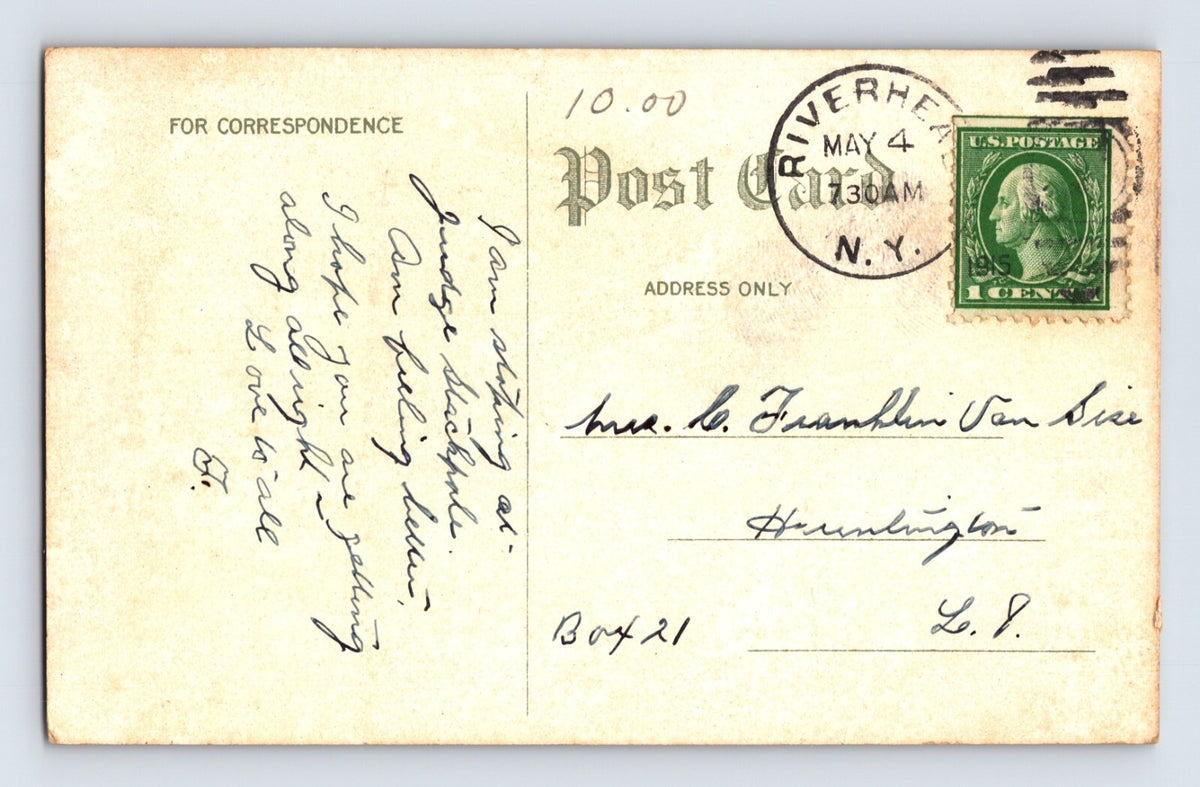 FOR CORRESPONDENCE
I am stoping at
Judge Stackpole.
Am feeling better.
I hope you are getting
along all right -
Love to all
F.
10.00
Post Card
ADDRESS ONLY
RIVERHEAD
MAY 4
730AM
N.Y.
1915
U.S.POSTAGE
1 CENT
Mrs. C. Franklin Van Sise
Huntington
L. I.
Box 21